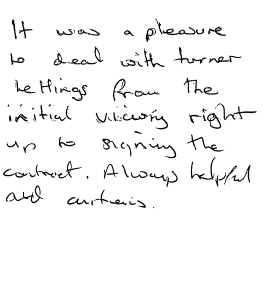 It was a pleasure
to deal with turner
lettings from the
initial viewing right
up to signing the
contract. Always helpful
and curteris.